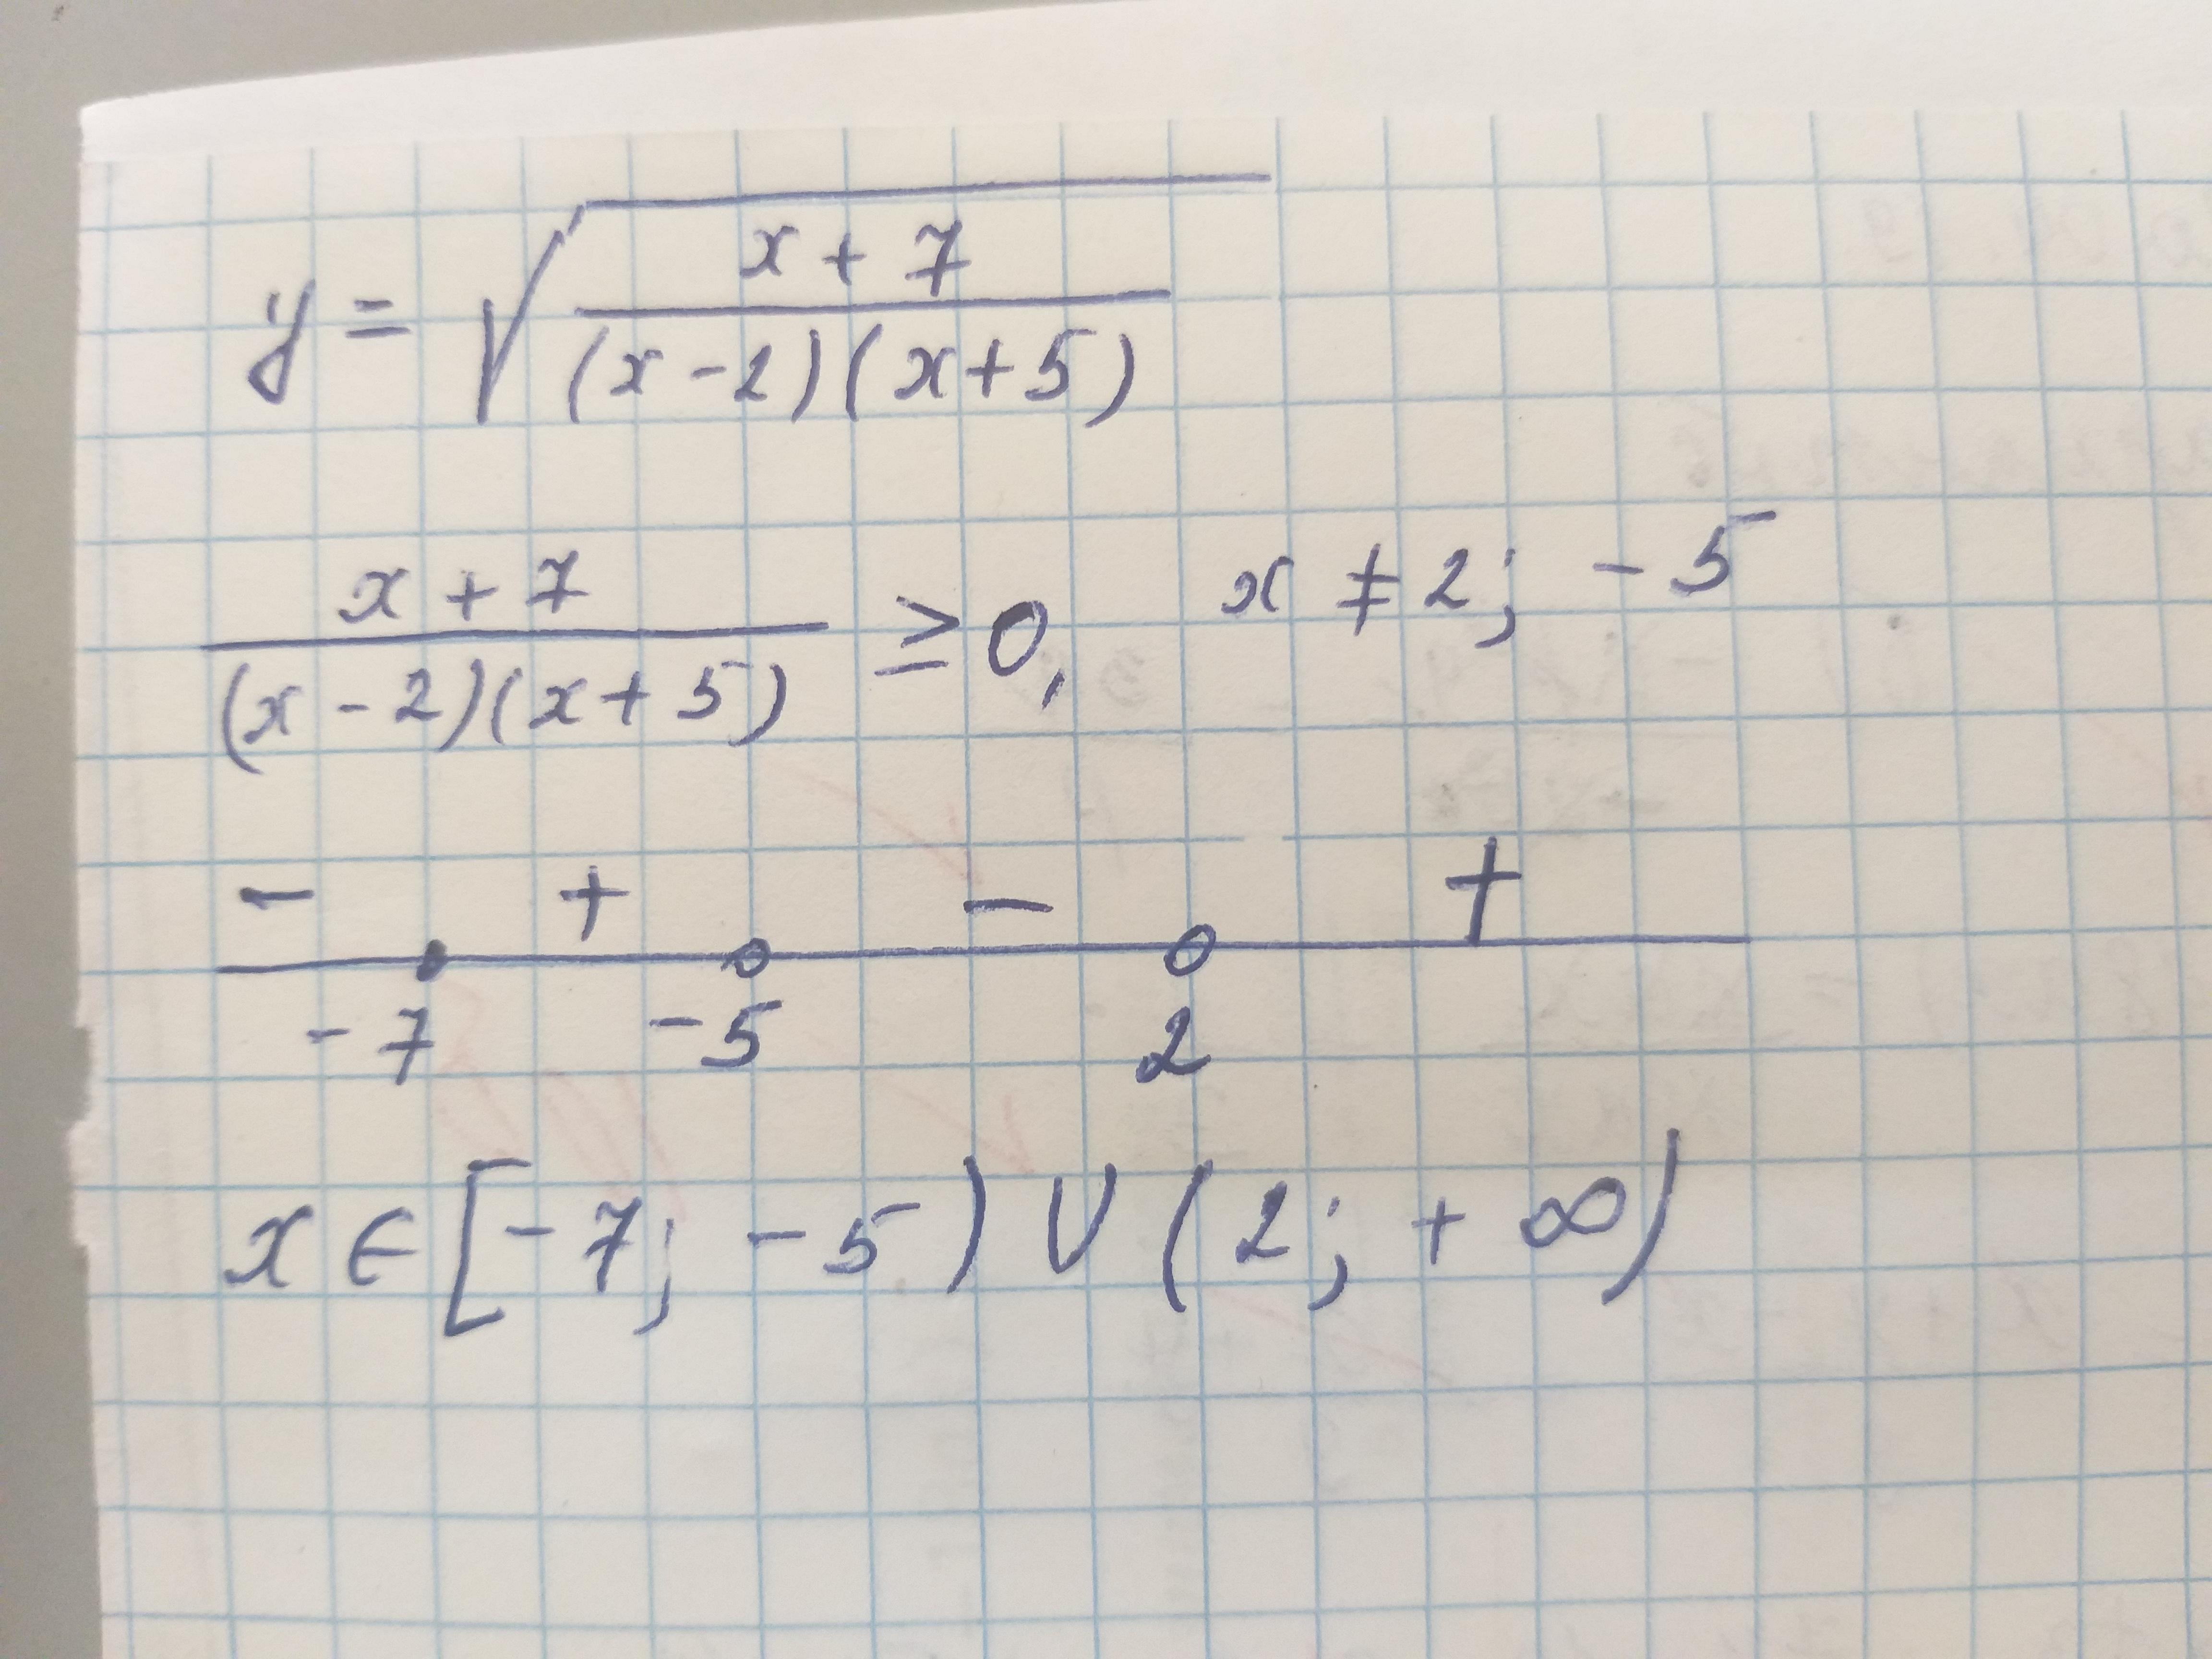 y = √((x + 7)/((x - 2)(x + 5)))
(x + 7)/((x - 2)(x + 5)) ≥ 0, x ≠ 2; - 5
- + - +
- 7 - 5 2
x ∈ [- 7; - 5) ∪ (2; + ∞)